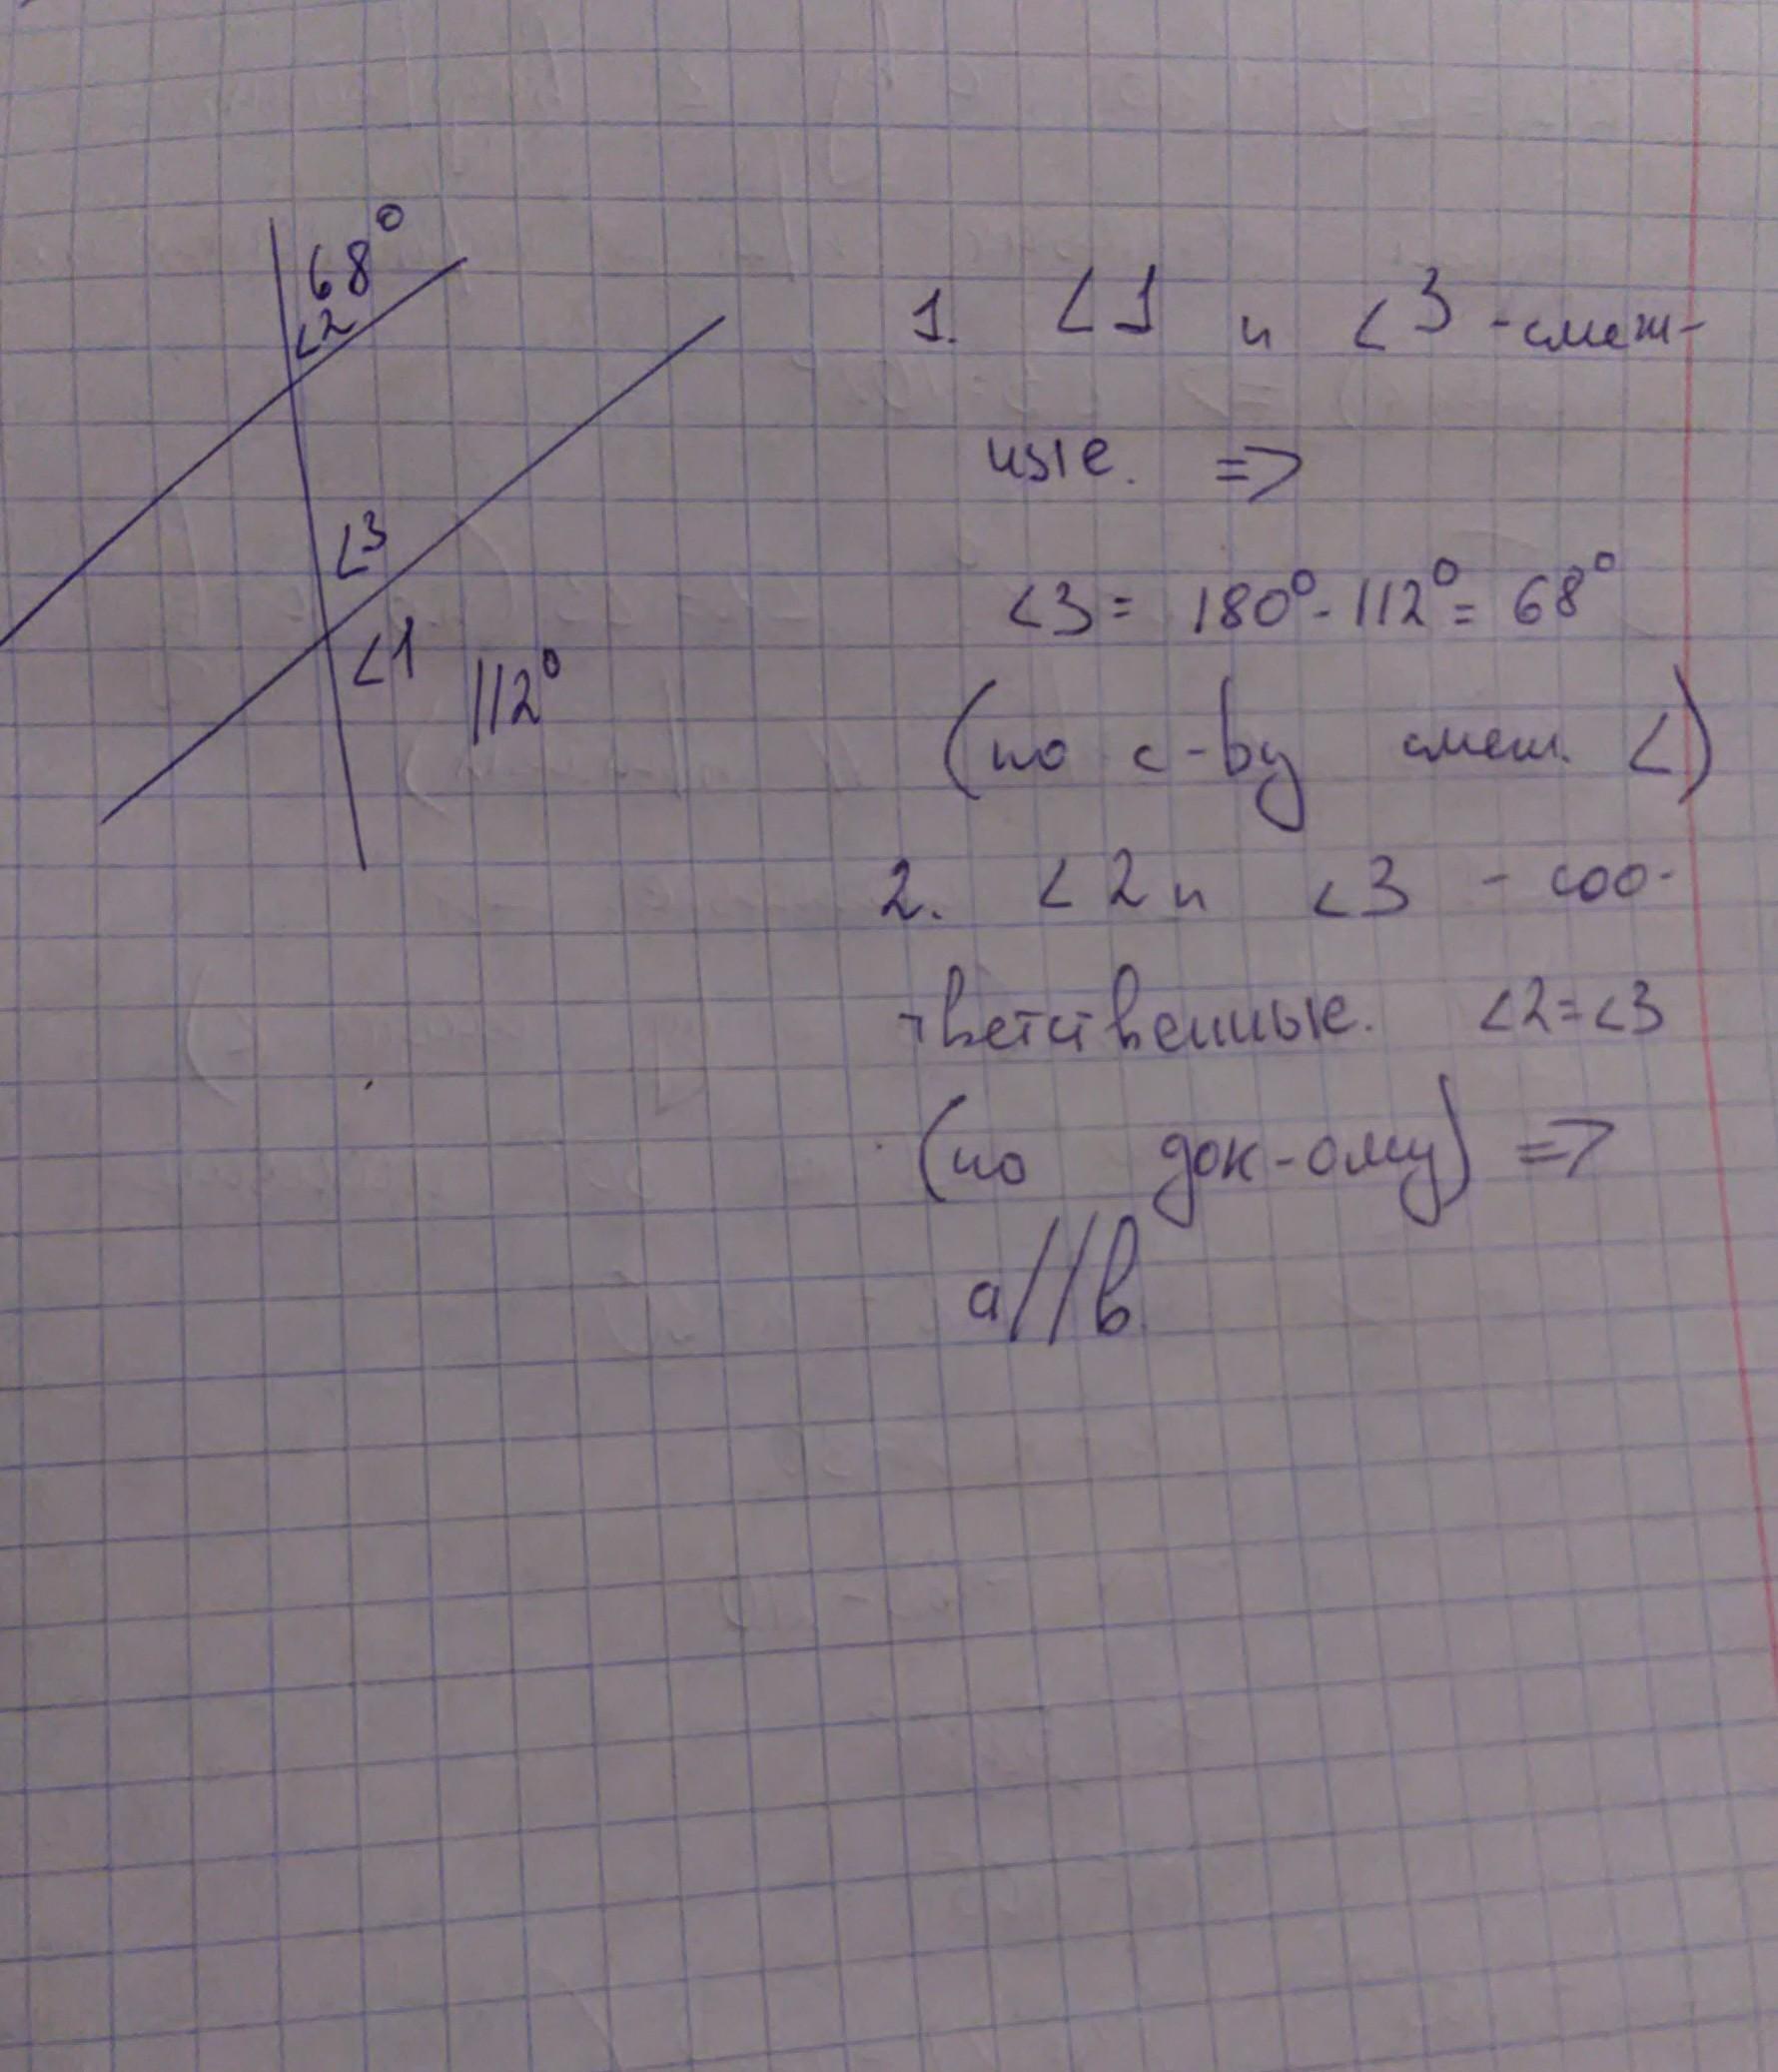 68°
∠2
∠3
∠1 112°
1. ∠1 и ∠3 - смеж-
ные. =>
∠3 = 180° - 112° = 68°
(по с-ву смеж. ∠)
2. ∠2 и ∠3 - соо-
тветственные. ∠2=∠3
(по док-ому) =>
a//b